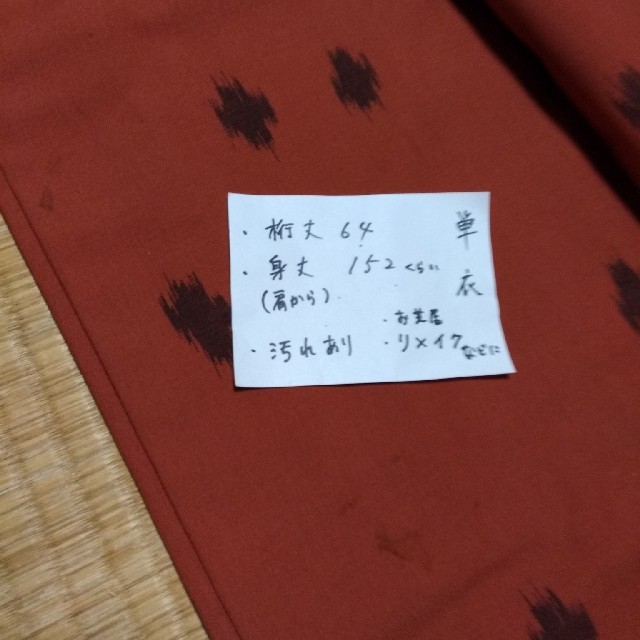 ・裄丈 64
・身丈 152くらい
(肩から)
・汚れあり
単衣
・お生産
・リメイクなどに